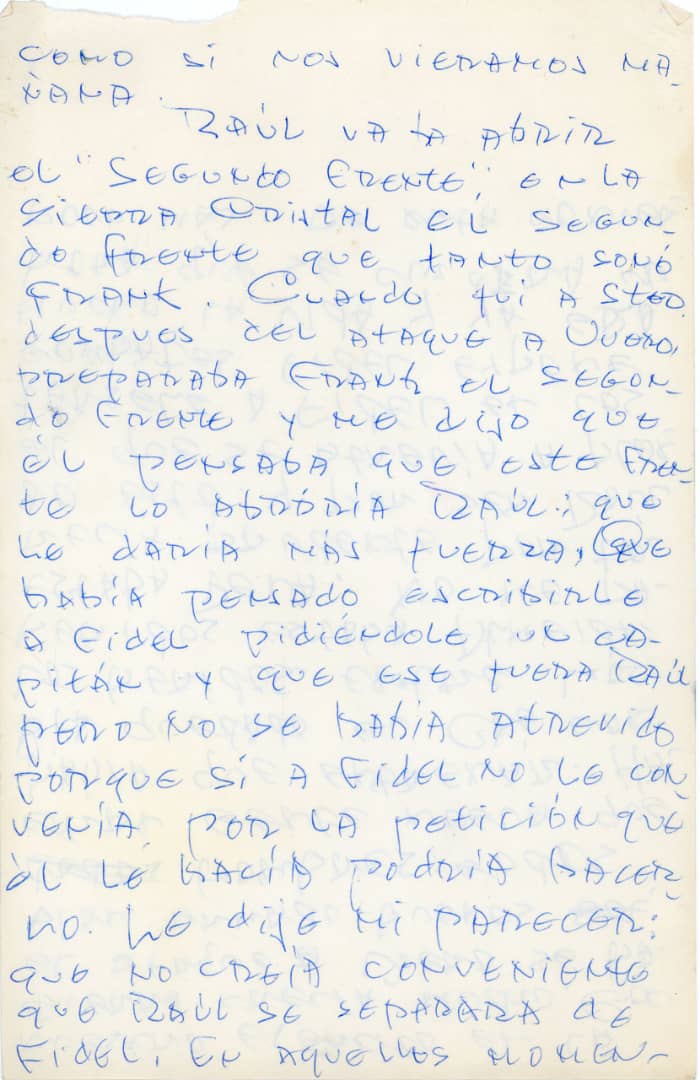 COMO SI NOS VIERAMOS MA-
ÑANA.
RAÚL VA A ABRIR
EL "SEGUNDO FRENTE", EN LA
SIERRA CRISTAL EL SEGUN-
DO FRENTE QUE TANTO SOÑÓ
FRANK. CUANDO FUI A STGO.
DESPUES DEL ATAQUE A UVERO,
PREPARABA FRANK EL SEGUN-
DO FRENTE Y ME DIJO QUE
ÉL PENSABA QUE ESTE FREN-
TE LO ABRIRÍA RAÚL; QUE
LE DARIA MÁS FUERZA, QUE
HABÍA PENSADO ESCRIBIRLE
A FIDEL PIDIÉNDOLE UN CA-
PITÁN Y QUE ESE FUERA RAÚL,
PERO NO SE HABIA ATREVIDO
PORQUE SI A FIDEL NO LE CON
VENÍA, POR LA PETICIÓN QUE
ÉL LE HACÍA PODRÍA HACER
LO. LE DIJE MI PARECER:
QUE NO CREÍA CONVENIENTE
QUE RAÚL SE SEPARARA DE
FIDEL. EN AQUELLOS MOMEN-